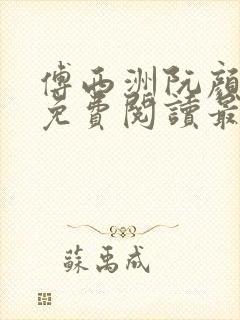 傅西洲阮顏
免費閱讀最
蘇禹成